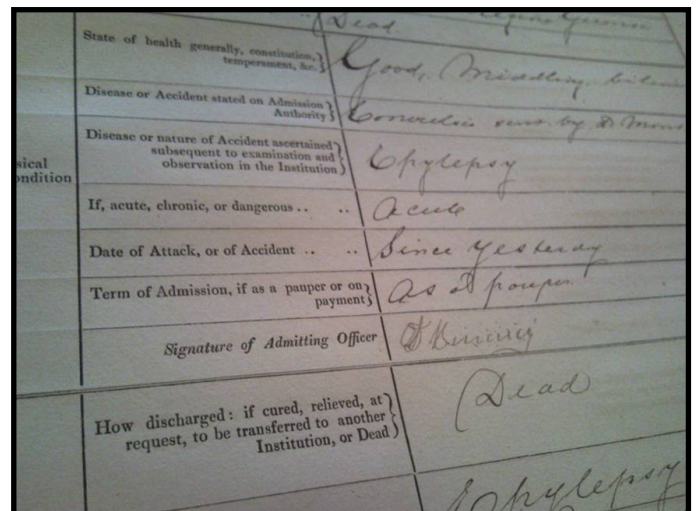 Dead
State of health generally, constitution, temperament, &c. Good, Middling,
Disease or Accident stated on Admission Authority sent by D
sical
ondition
Disease or nature of Accident ascertained subsequent to examination and observation in the Institution Epylepsy
If, acute, chronic, or dangerous .. .. acute
Date of Attack, or of Accident .. .. Since yesterday
Term of Admission, if as a pauper or on payment As a pauper
Signature of Admitting Officer
How discharged: if cured, relieved, at request, to be transferred to another Institution, or Dead Dead
Epylepsy